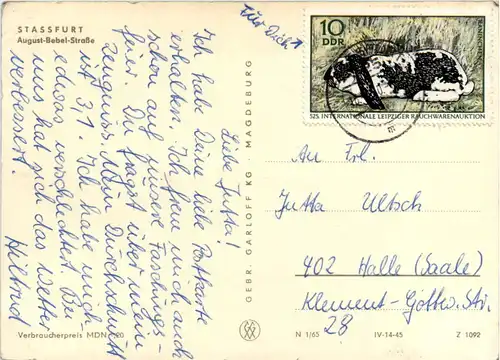 STASSFURT
August-Bebel-Straße
Nur Dich!
10
DDR
KANINCHEN
525. INTERNATIONALE LEIPZIGER RAUCHWARENAUKTION
Liebe Jutta!
Ich habe Deine liebe Postkarte
erhalten. Ich freue mich auch
schon auf unsere Faschings-
feier. Du fragst über mein
Zeugnis. Mein Durchschnitt
ist 3,1. Ich habe mich
etwas verschlechtert. Bei
uns hat sich das Wetter
verbessert.
Hiltrud
GEBR. GARLOFF KG · MAGDEBURG
An Frl.
Jutta Ultsch
402 Halle (Saale)
Klement-Gottw. Str.
28
Verbraucherpreis MDN
N 1/65
IV-14-45
Z 1092